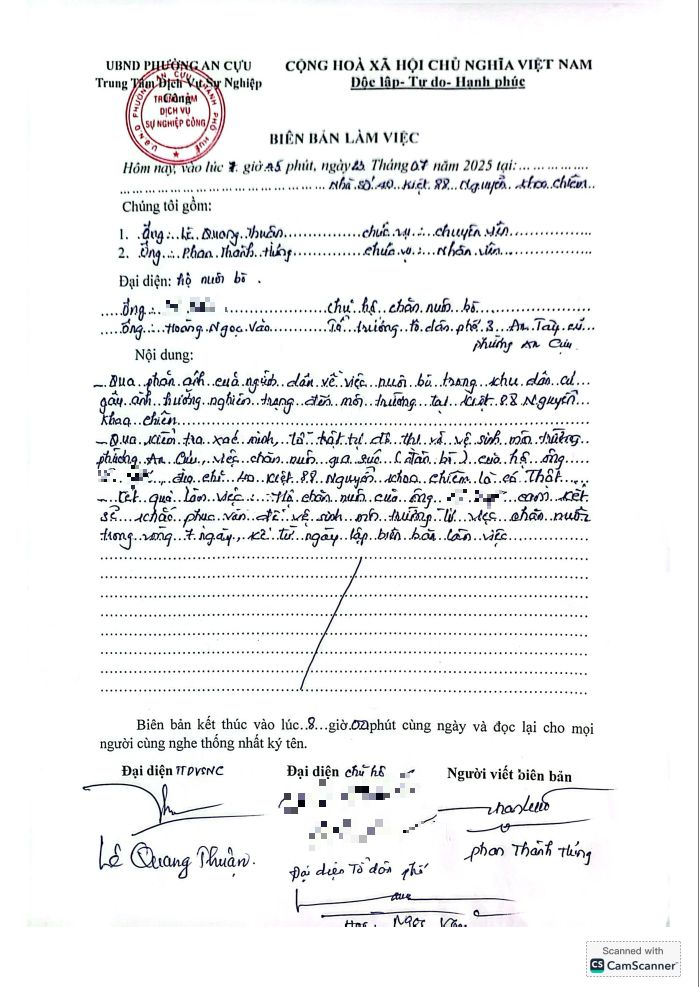 UBND PHƯỜNG AN CỰU
Trung Tâm Dịch Vụ Sự Nghiệp
Công
CỘNG HOÀ XÃ HỘI CHỦ NGHĨA VIỆT NAM
Độc lập- Tự do- Hạnh phúc
TRUNG TÂM
DỊCH VỤ
SỰ NGHIỆP CÔNG
BIÊN BẢN LÀM VIỆC
Hôm nay, vào lúc 7 giờ 45 phút, ngày Tháng 07 năm 2025 tại:
Nhà số 40 Kiệt 88 Nguyễn Khoa Chiêm
Chúng tôi gồm:
1. Ông: Lê Quang Thuận chức vụ: chuyên viên
2. Ông: Phan Thành Hưng chức vụ: Nhân viên
Đại diện: hộ nuôi bò.
Ông: chủ hộ chăn nuôi bò
Ông: Hoàng Ngọc Vào Tổ trưởng tổ dân phố 3 An Tây cũ
phường An Cựu
Nội dung:
- Qua phản ánh của người dân về việc nuôi bò trong khu dân cư
gây ảnh hưởng nghiêm trọng đến môi trường tại Kiệt 88 Nguyễn
Khoa Chiêm
- Qua kiểm tra xác minh, tổ trật tự đô thị và vệ sinh môi trường
phường An Cựu, việc chăn nuôi gia súc (đàn bò) của hộ ông
, địa chỉ 40 Kiệt 88 Nguyễn Khoa Chiêm là có Thật
- Kết quả làm việc: Hộ chăn nuôi của ông cam kết
sẽ khắc phục vấn đề vệ sinh môi trường từ việc chăn nuôi
trong vòng 7 ngày, kể từ ngày lập biên bản làm việc
Biên bản kết thúc vào lúc 8 giờ 00 phút cùng ngày và đọc lại cho mọi
người cùng nghe thống nhất ký tên.
Đại diện TTDVSNC
Đại diện chủ hộ
Người viết biên bản
Lê Quang Thuận.
Phan Thành Hưng
Đại diện Tổ dân phố
Scanned with
CS CamScanner